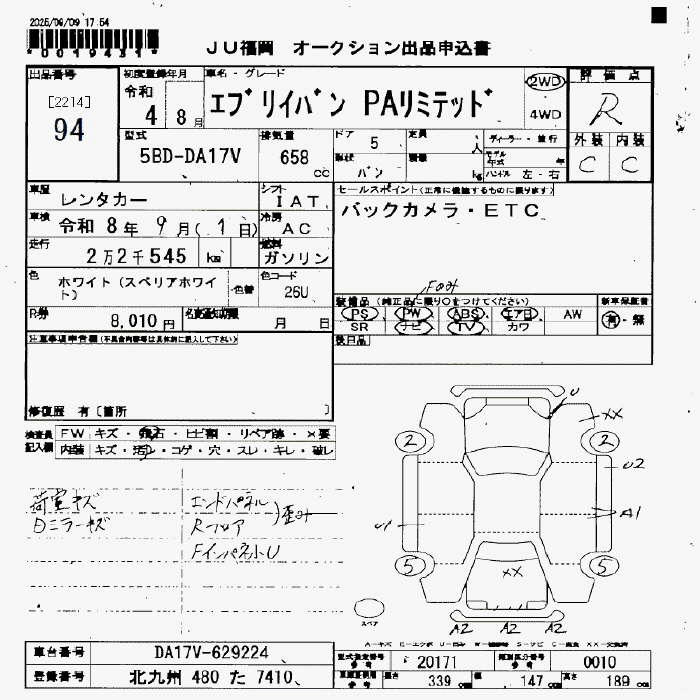 2025/09/09 17:54
*0019431*
JU福岡 オークション出品申込書
出品番号
[2214]
94
初度登録年月
令和 4 8月
車名・グレード
エブリイバン PAリミテッド
2WD
4WD
評価点
R
外装 内装
C C
型式
5BD-DA17V
排気量
658 cc
ドア 5
形状 バン
定員 人
積載 kg
ディーラー・並行
モデル年式 年
ハンドル 左・右
車歴 レンタカー
シフト IAT
車検 令和 8年 9月( 1日)
冷房 AC
走行 2万2千545 km
燃料 ガソリン
色 ホワイト(スペリアホワイト)
色替
色コード 26U
R券 8,010円
名変通知期限 月 日
セールスポイント(正常に機能するものに限ります)
バックカメラ・ETC
Fのみ
装備品(純正品に限り○をつけてください)
新車保証書
PS PW ABS エアB AW 有・無
SR ナビ TV カワ
後日品
注意事項申告欄(不具合内容等は具体的に記入して下さい)
修復歴 有〔箇所 〕
検査員記入欄
FW キズ・飛石・ヒビ割・リペア跡・×要
内装 キズ・汚れ・コゲ・穴・スレ・キレ・破レ
荷室キズ
Dミラーキズ
エンドパネル
Rフロア
歪み
Fインパネ小U
U
XX
2 2
U2
A1
U1
5 5
XX
スペア
A2 A2 A2
車台番号 DA17V-629224
登録番号 北九州 480 た 7410
型式指定番号 参考 20171
類別区分番号 参考 0010
長さ 339 cm
幅 147 cm
高さ 189 cm